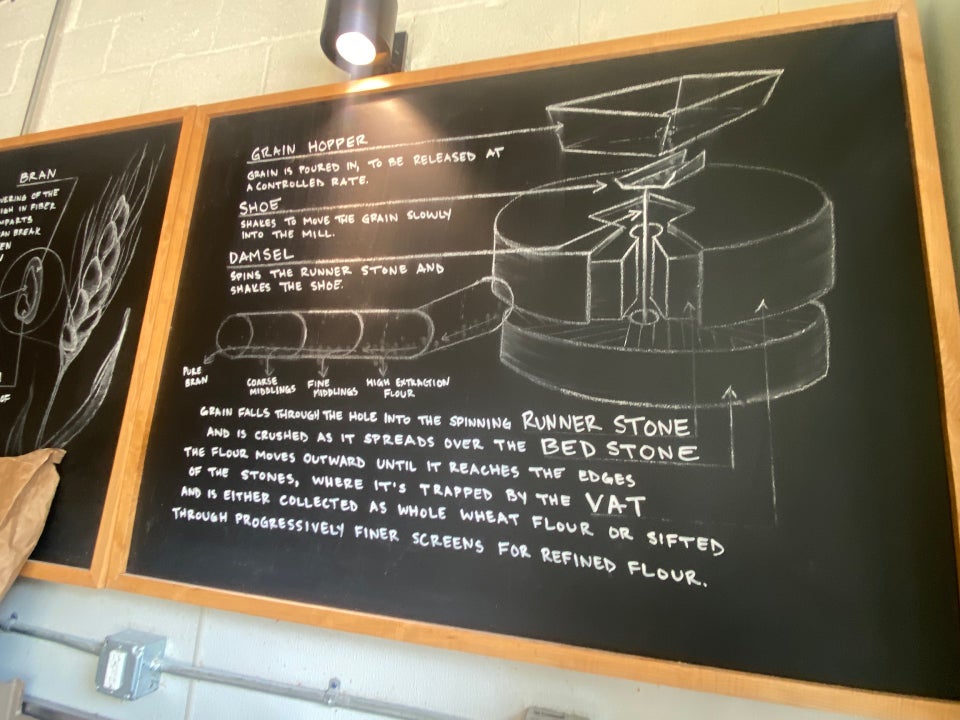 BRAN
VERING OF THE
IGH IN FIBER
MPARTS
AN BREAK
EN
OF
GRAIN HOPPER
GRAIN IS POURED IN, TO BE RELEASED AT
A CONTROLLED RATE.
SHOE
SHAKES TO MOVE THE GRAIN SLOWLY
INTO THE MILL.
DAMSEL
SPINS THE RUNNER STONE AND
SHAKES THE SHOE.
PURE
BRAN
COARSE
MIDDLINGS
FINE
MIDDLINGS
HIGH EXTRACTION
FLOUR
GRAIN FALLS THROUGH THE HOLE INTO THE SPINNING RUNNER STONE
AND IS CRUSHED AS IT SPREADS OVER THE BED STONE
THE FLOUR MOVES OUTWARD UNTIL IT REACHES THE EDGES
OF THE STONES, WHERE IT'S TRAPPED BY THE VAT
AND IS EITHER COLLECTED AS WHOLE WHEAT FLOUR OR SIFTED
THROUGH PROGRESSIVELY FINER SCREENS FOR REFINED FLOUR.